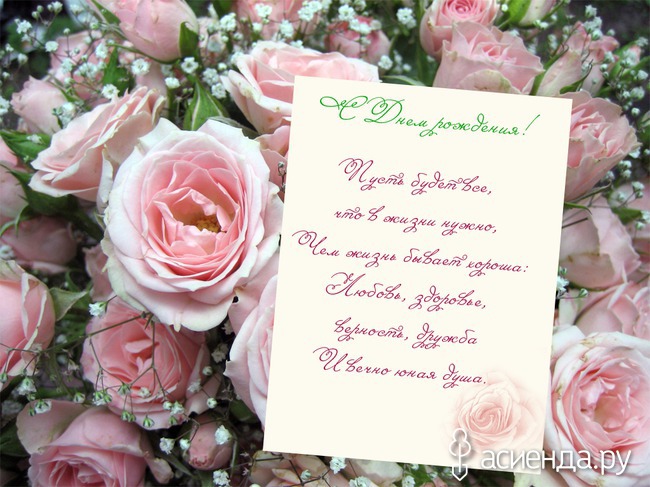 С Днем рождения!
Пусть будет все,
что в жизни нужно,
Чем жизнь бывает хороша:
Любовь, здоровье,
верность, дружба
И вечно юная душа.
асиенда.ру